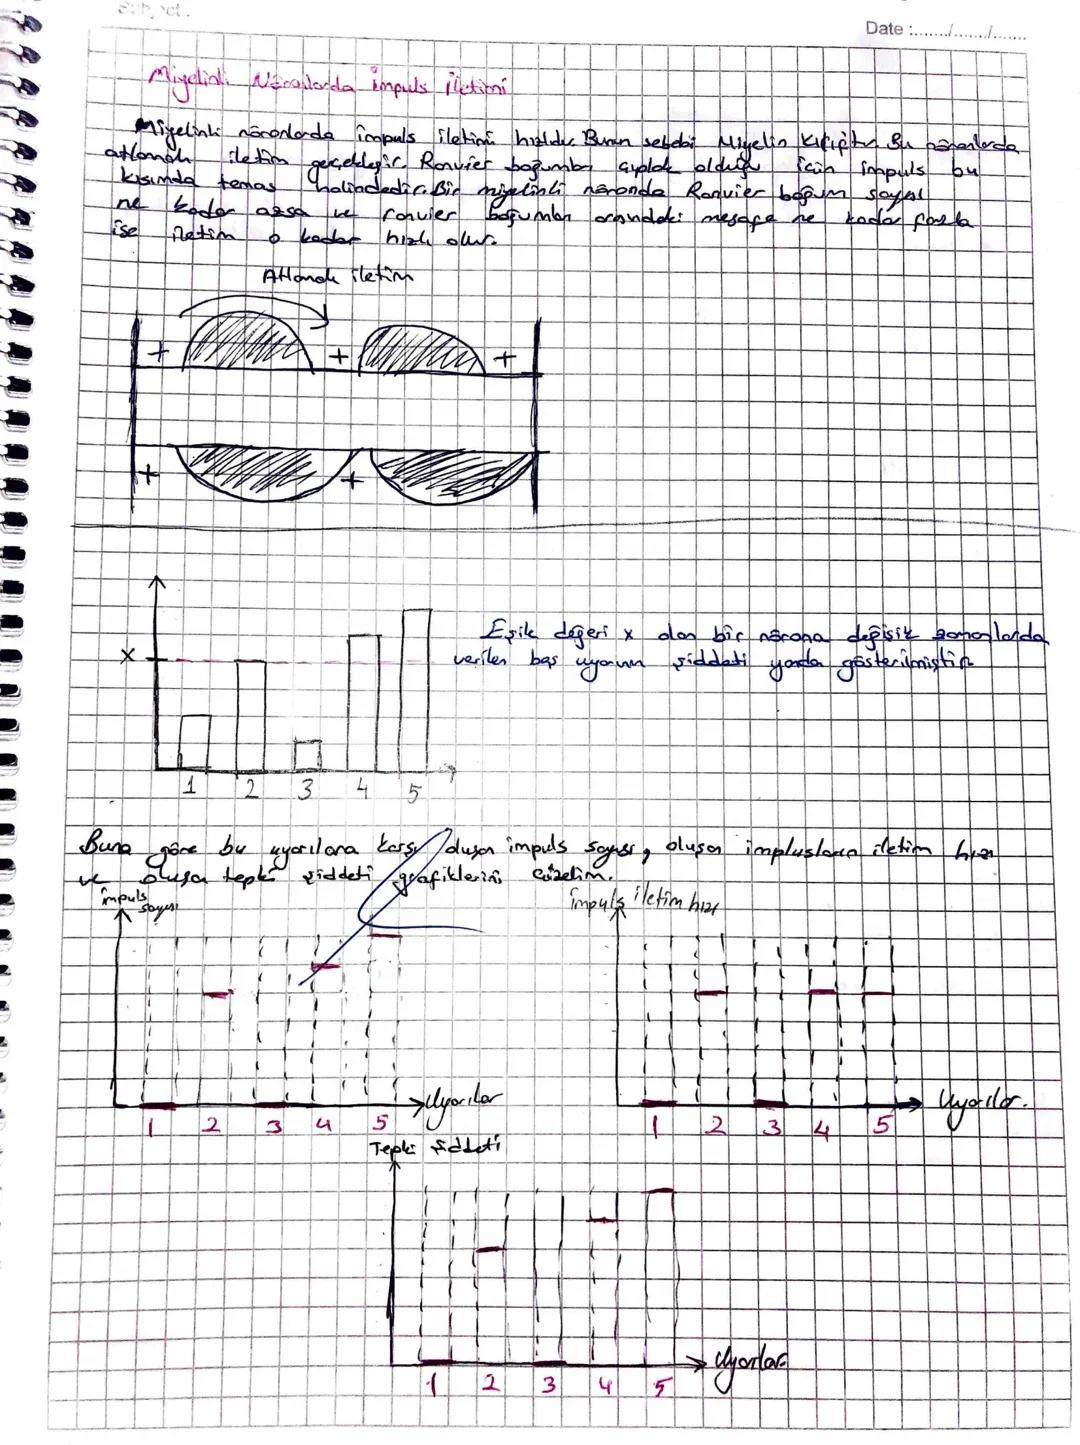 Subject.
Date :......../......../........
Miyelinli Nöronlarda İmpuls İletimi
Miyelinli nöronlarda impuls iletimi hızlıdır. Bunun sebebi Miyelin Kılıftır. Bu nöronlarda
atlamalı iletim gerçekleşir. Ranvier boğumları çıplak olduğu için impuls bu
kısımda temas halindedir. Bir miyelinli nöronda Ranvier boğum sayısı
ne kadar azsa ve ranvier boğumları arasındaki mesafe ne kadar fazla
ise iletim o kadar hızlı olur.
Atlamalı iletim
+ + +
+ +
Eşik değeri x olan bir nörona değişik zamanlarda
verilen beş uyarının şiddeti yanda gösterilmiştir
X
1 2 3 4 5
Buna göre bu uyarılara karşı oluşan impuls sayısı, oluşan implusların iletim hızı
ve oluşan tepki şiddeti grafiklerini çizelim.
impuls sayısı
impuls iletim hızı
Uyarılar
1 2 3 4 5
Uyarılar.
1 2 3 4 5
Tepki Şiddeti
Uyarılar
1 2 3 4 5